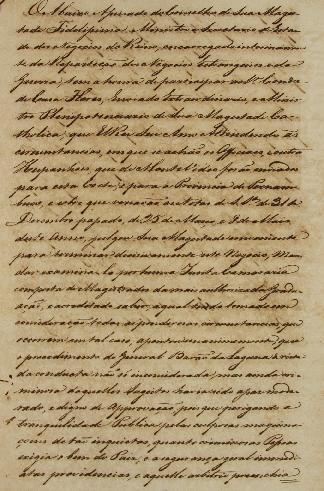 O Abaixo Assignado do Conselho de Sua Mages
tade Fidelissima, Ministro e Secretario de Esta
do dos Negocios do Reino, encarregado interinamen
te da Repartição dos Negocios Estrangeiros e da
Guerra, tem a honra de participar ao Sr. Conde
de Casa Flores, Enviado Extraordinario, e Minis
tro Plenipotenciario de Sua Magestade Ca
tholica, que El Rei Seu Amo Attendendo ás
circunstancias, em que se achão os Officiaes
Hespanhoes, que de Monte Video forão mandados
para esta Corte, e para a Provincia de Pernam
buco, e sobre que versarão as Notas de S. Sa. de 31 de
Dezembro passado, de 23 de Março, e 9 de Maio
deste Anno, julgou Sua Magestade conveniente
para terminar decisivamente este Negocio, Man
dar examinal-o por huma Junta
composta de Magistrados da mais authorizada Gradu
ação, e acreditado saber, a qual tendo tomado em
consideração todas as ponderosas circunstancias, que
occorrem em tal caso, assentou unanimemente que
o procedimento do General Barão da Laguna á vista
da conducta não só inconsiderada, mas ainda cri
minosa daquelles Sugeitos havia sido assaz mode
rado, e digno de Approvação, pois que perigando a
tranquilidade Publica pelas culposas maquina
ções de tão inquietos, quanto criminosos
exigia o bem do Paiz, e a segurança geral immedi
atas providencias, e aquelle arbitrio preenchia